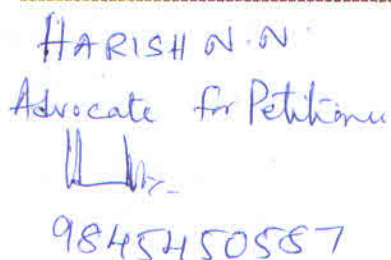 HARISH N.N.
Advocate for Petitioner
9845450587